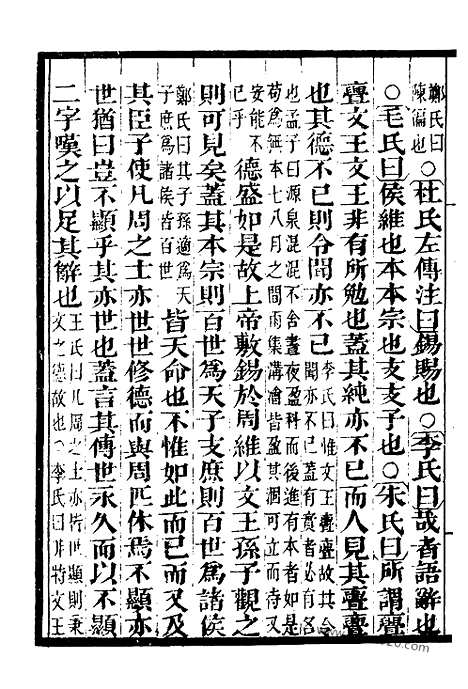 鄭氏曰
陳徧也○杜氏左傳注曰錫賜也○李氏曰哉者語辭也
○毛氏曰侯維也本本宗也支支子也○朱氏曰所謂亹
亹文王文王非有所勉也蓋其純亦不已而人見其亹亹
也其德不已則令聞亦不已李氏曰惟文王亹亹故其令
聞亦不已蓋有實者必有名
也孟子曰源泉混混不舍晝夜盈科而後進有本者如是
苟爲無本七八月之間雨集溝澮皆盈其涸可立而待又
安能不
已乎德盛如是故上帝敷錫於周維以文王孫子觀之
則可見矣蓋其本宗則百世爲天子支庶則百世爲諸侯
鄭氏曰其子孫適爲天
子庶爲諸侯皆百世皆天命也不惟如此而已而又及
其臣子使凡周之士亦世世修德而與周匹休焉不顯亦
世猶曰豈不顯乎其亦世也蓋言其傳世永久而以不顯
二字嘆之以足其辭也王氏曰凡周之士亦皆世顯則秉
文之德故也○李氏曰非特文王